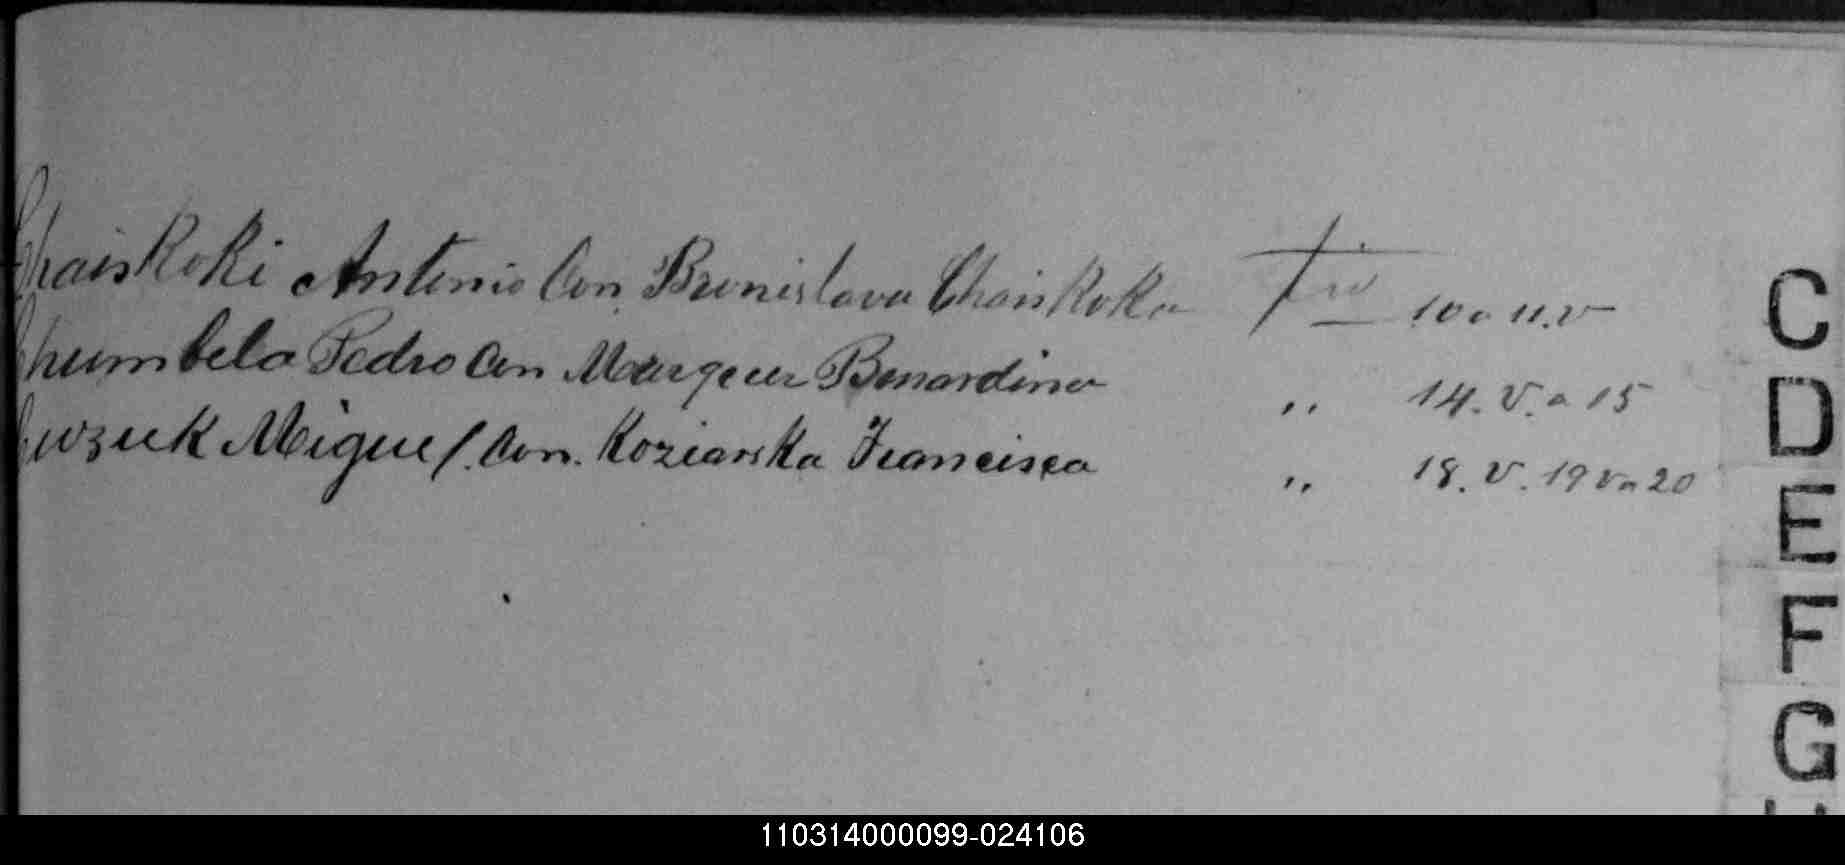 Chaiskoki Antonio Con Bronislava Chaiskoka 10 a 11.v
Chumbela Pedro Con Marquez Benardina ,, 14. V. a 15
Miguel. Con. Koziarska Francisca ,, 18. V. 19 v a 20
C
D
E
F
G
110314000099-024106